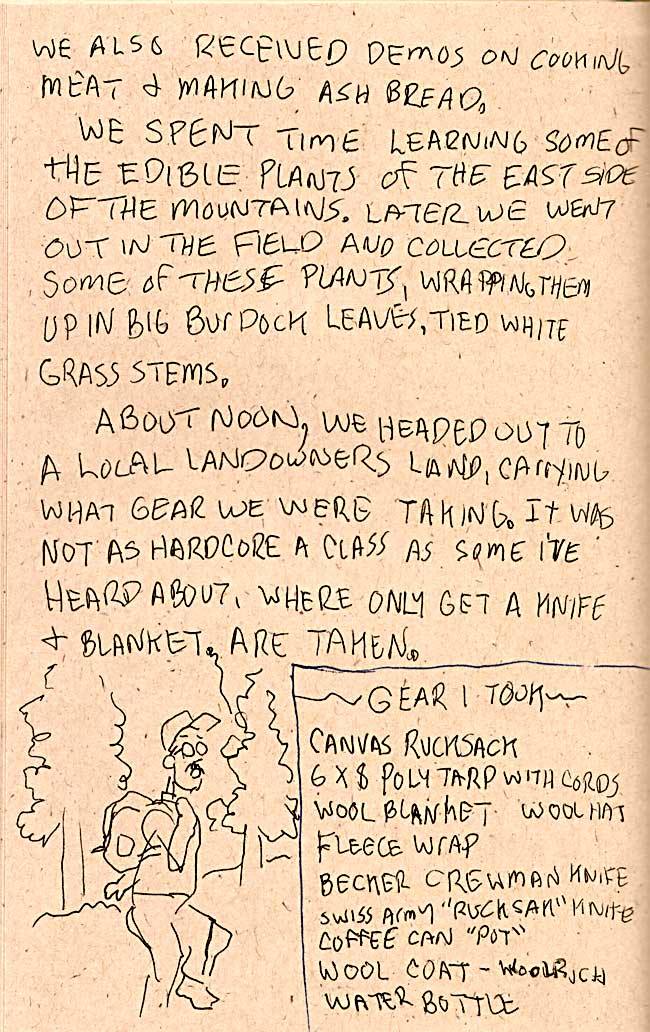 WE ALSO RECEIVED DEMOS ON COOKING
MEAT & MAKING ASH BREAD.
WE SPENT TIME LEARNING SOME OF
THE EDIBLE PLANTS OF THE EAST SIDE
OF THE MOUNTAINS. LATER WE WENT
OUT IN THE FIELD AND COLLECTED
SOME OF THESE PLANTS, WRAPPING THEM
UP IN BIG BURDOCK LEAVES, TIED WHITE
GRASS STEMS.
ABOUT NOON, WE HEADED OUT TO
A LOCAL LANDOWNERS LAND, CARRYING
WHAT GEAR WE WERE TAKING. IT WAS
NOT AS HARDCORE A CLASS AS SOME I'VE
HEARD ABOUT, WHERE ONLY GET A KNIFE
& BLANKET. ARE TAKEN.
GEAR I TOOK
CANVAS RUCKSACK
6 X 8 POLY TARP WITH CORDS
WOOL BLANKET WOOL HAT
FLEECE WRAP
BECKER CREWMAN KNIFE
SWISS ARMY "RUCKSAK" KNIFE
COFFEE CAN "POT"
WOOL COAT - WOOLRICH
WATER BOTTLE